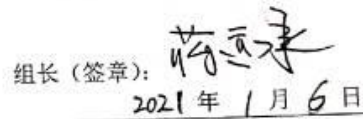 组长（签章）：
2021年1月6日